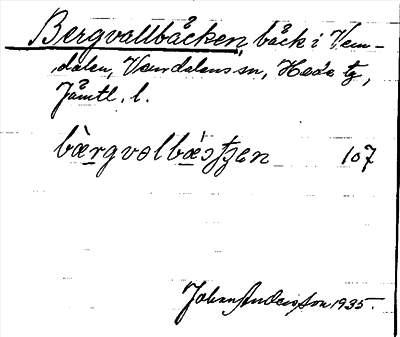 Bergvallbäcken, bäck i Vem-
dalen, Vemdalens sn, Hede tg,
Jämtl. l.
bærgvalbæstʒen 107
Johan Andersson 1935.